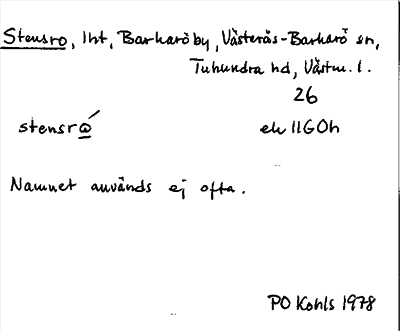 Stensro, lht, Barkaröby, Västerås-Barkarö sn,
Tuhundra hd, Västm. l.
26
stensrώ ek 11G0h
Namnet används ej ofta.
PO Kohls 1978